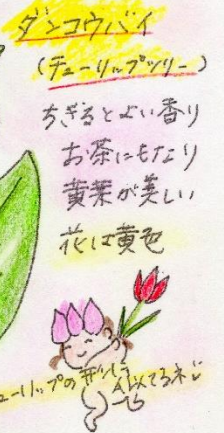 ダンコウバイ
(チューリップツリー)
ちぎるとよい香り
お茶にもなり
黄葉が美しい
花は黄色
ューリップの形に
似てるネ